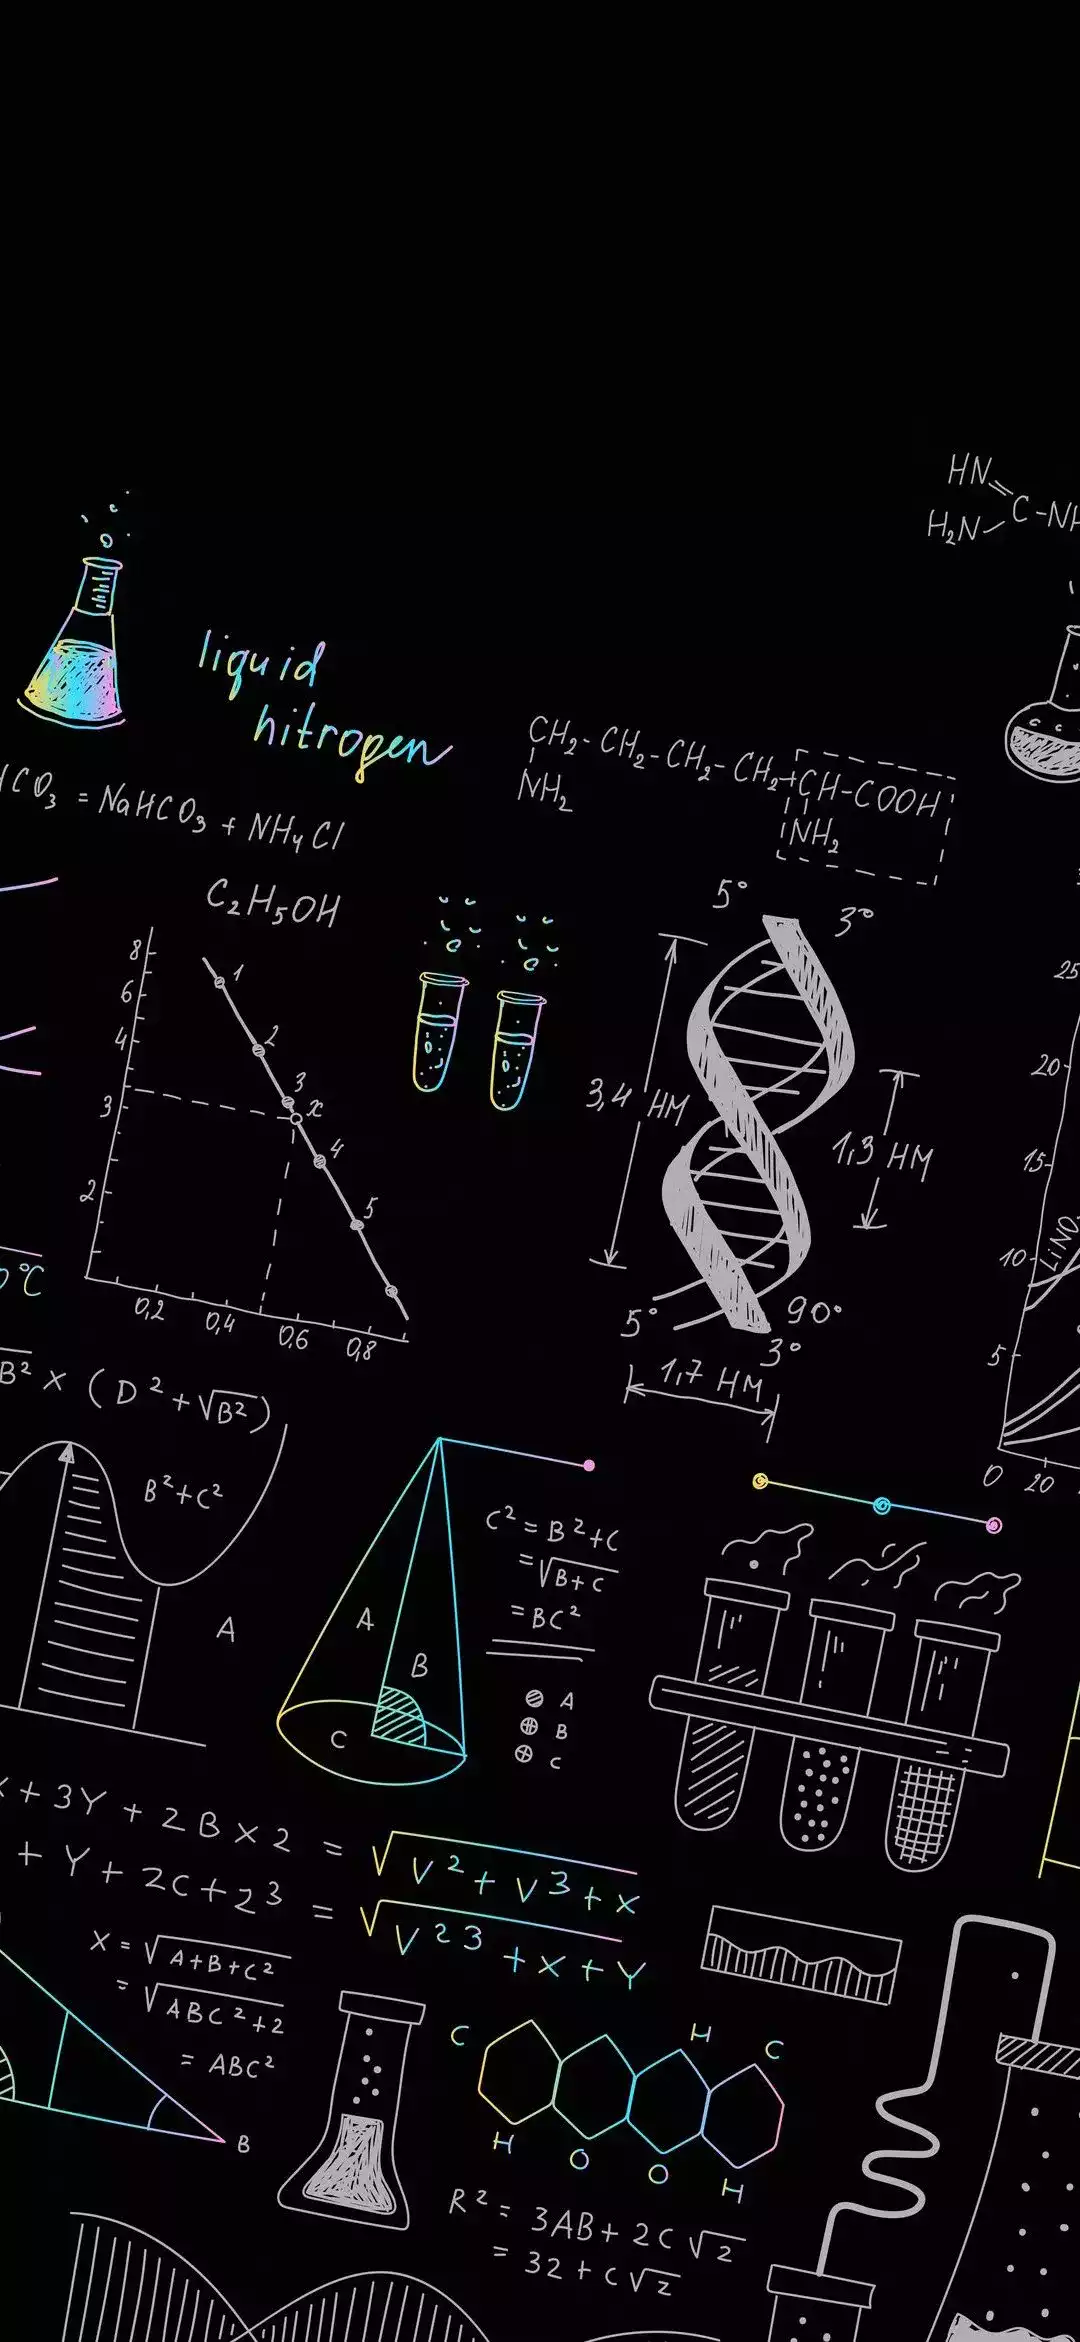 HN
C-NH
H₂N
liquid
hitrogen
CH₂-CH₂-CH₂-CH₂+CH-COOH
NH₂
NH₂
HCO₃ = NaHCO₃ + NH₄Cl
C₂H₅OH
8
6
4
3
2
1
2
3
x
4
5
0,2
0,4
0,6
0,8
5°
3°
3,4 HM
1,3 HM
5°
90°
3°
1,7 HM
25
20
15
10
5
0
20
LiNO
0°C
B² × (D² + √B²)
B²+C²
A
A
B
C
C² = B²+C
= √B+C
= BC²
A
B
C
X + 3Y + 2B × 2 = √V² + V³ + X
+ Y + 2C + 2³ = √V²³ + X + Y
X = √A+B+C²
= √ABC²+2
= ABC²
B
C
H
C
H
O
O
H
R² = 3AB + 2C√2
= 32 + C√2